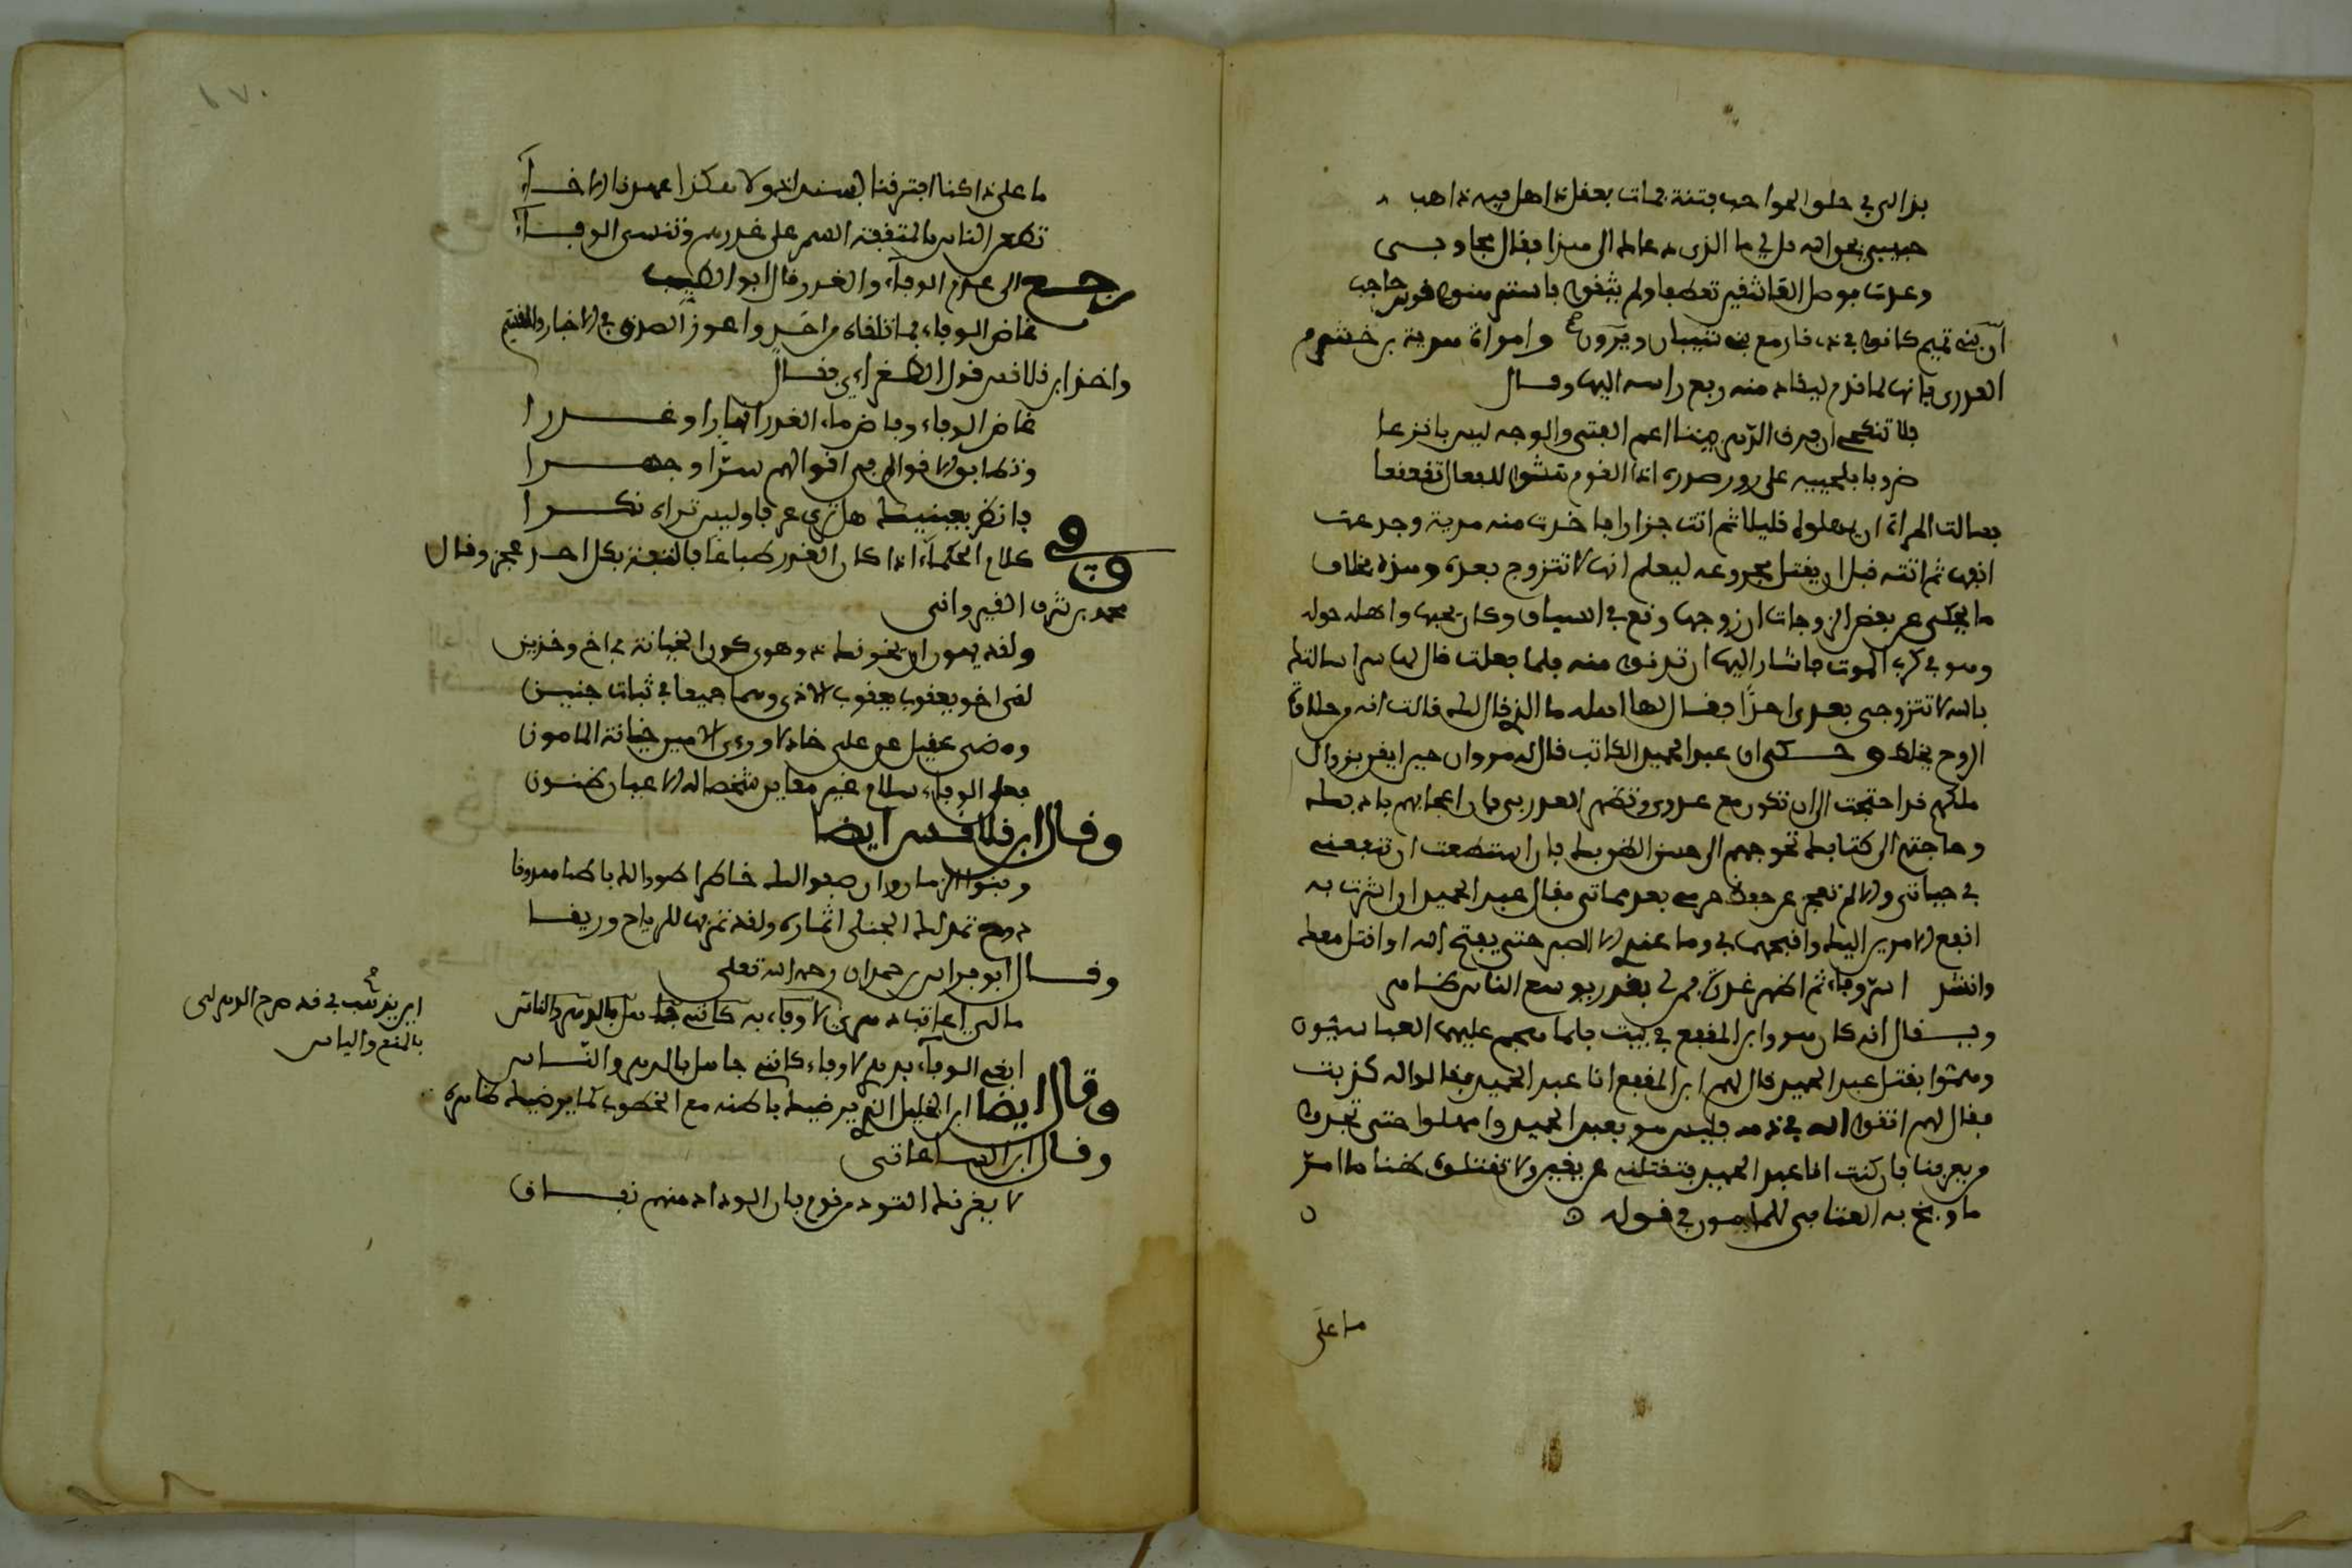 بذا لى في حلو المواحب فتنة فجات بعقل ذاهل فيه ذاهب
حبيبي بحو الله قل لي ما الذي دعا الى هذا فقال مجاوبي
وعدت بوصل العاشقين تعطفا ولم يثقوا فاستتر هنوا قوس حاجب
ان بني تميم كانوا في ذي قار مع بني شيبان ويرون وامراة هدبة بن خشرم
العدري فانها لما قدم ليقاد منه رفع راسه اليها وقال
فلا تنكحي ان فرق الدهر بيننا اغم القفى والوجه ليس بانزعا
ضروبا بلحييه على زور صدره اذا القوم هشوا للفعال تقنعا
فسالت المراة ان يمهلوه قليلا ثم اتت جزارا فاخذت منه مدية وجدعت
انفها ثم اتته قبل ان يقتل مجدوعة ليعلم انها لا تتزوج بعده وهذه بخلاف
ما يحكى عن بعض الزوجات ان زوجها وقع في السياق وكان يحبها واهله حوله
وهو في كرب الموت فاشار اليها ان تدنو منه فلما فعلت قال لها سرا سالتك
بالله لا تتزوجي بعدي احدا فقال لها اهله ما الذي قال لك قالت انه من حلاوة
الروح يخلط وحكى ان عبد الحميد الكاتب قال له مروان حين ايقن بزوال
ملكهم قد احتجت الى ان تكون مع عدوي وتظهر الغدر بي فان اعجابهم بادبك
وحاجتهم الى كتابك تحوجهم الى حسن الظن بك فان استطعت ان تنفعني
في حياتي والا لم تعجز عن حفظ حرمي بعد مماتي فقال عبد الحميد ان الذي اشرت به
انفع الامرين اليك واقبحهما بي وما عندي الا الصبر حتى يفتح الله او اقتل معك
وانشد اسر وفاء ثم اظهر غدرة فمن لي بعذر يوسع الناس ظاهره
ويقال انه كان هو وابن المقفع في بيت فلما هجم عليهما العباسيون
وهموا بقتل عبد الحميد قال لهم ابن المقفع انا عبد الحميد فقالوا له كذبت
فقال لهم اتقوا الله في دمه فليس هو بعبد الحميد وامهلوا حتى تجدوا
من يعرفنا فان كنت انا عبد الحميد فتقتلني عن يقين ولا تقتلوه ظنا ما امر
ما وبخ به العتابي للمامون في قوله
ما على
ما على ذا كنا افترقنا بسنداد ولا هكذا عهدنا الاخاء
تطعن الناس بالمثقفة السمر على غدرهم وتنسى الوفاء
رجع الى عدم الوفاء والغدر قال ابو الطيب
غاض الوفاء فما تلقاه من احد واعوز الصدق في الاخبار والقسم
واخذ ابن قلاقس قول الطغرائي فقال
غاض الوفاء وفاض ماء الغدر انهارا وغدرا
وتطابق الاقوام في اقوالهم سرا وجهرا
فانظر بعينيك هل ترى عرفا وليس تراه نكرا
وفي كلام الحكماء اذا كان الغدر طباعا فالثقة بكل احد عجز وقال
محمد بن شرف القيرواني
ولقد يهون ان يخونك وهوى كون الخيانة من اخ وخدين
لقى اخو يعقوب يعقوب الاذى وهما جميعا في ثبات جنين
ومضى عقيل عن علي خاذلا وراى الامين خيانة المامون
فعلى الوفاء سلام غير معاين شخصا له الا عيان ظنون
وقال ابن قلاقس ايضا
وبنو الزمان وان صفوا لك ظاهرا طووا لك باطنا ممذوقا
دوح تمد لك الجنى اثماره ولقد تهز لها الرياح وريقا
وقال ابو فراس بن حمدان رحمه الله تعلى
ما لي اعاتب دهري لا وفاء به كانني جاهل بالدهر والناس
ابغي الوفاء بدهر لا وفاء كانني جاهل بالدهر والناس
وقال ايضا ابن الخليل الذي يرضيك باطنه مع الخطوب كما يرضيك ظاهره
وقال ابن الساعاتي
لا يغرنك التودد من قوم فان الوداد منهم نفاق